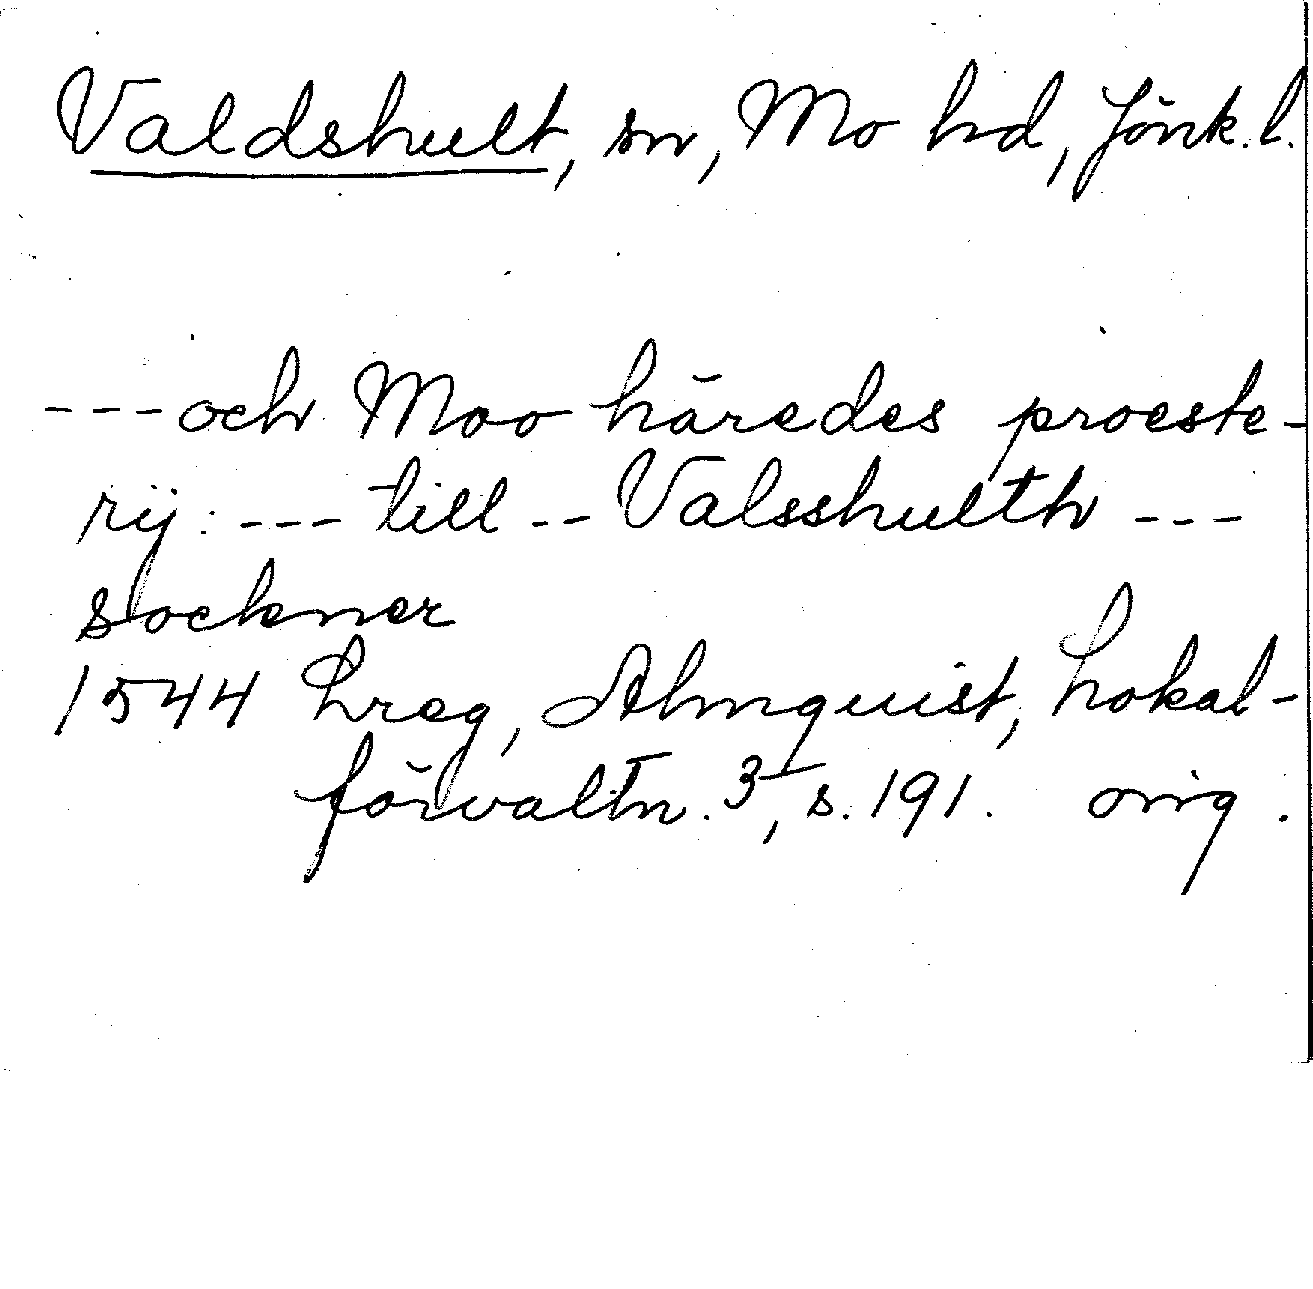 Valdshult, sn, Mo hd, Jönk. l.
--- och Moo häredes proeste-
rij: --- till -- Valsshulth ---
sockner
1544 Lreg, Almquist, Lokal-
förvaltn. 3, s. 191. orig.